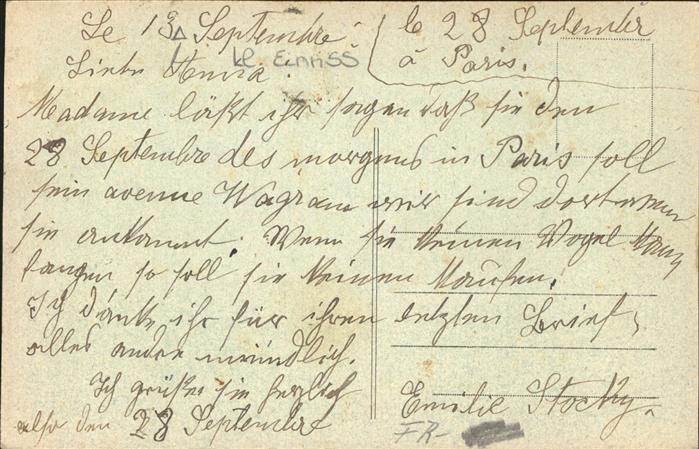 Le 13 Septembre
le 28 Septembr
à Paris.
Liebe Anna
Madame läßt ihr sagen daß sie den
28 Septembre des morgens in Paris soll
sein avenue Wagram wir sind dort wenn
sie ankommt. Wenn sie keinen Vogel kann
fangen so soll sie keinen kaufen.
Ich danke ihr für ihren letzten Brief,
alles andre mündlich.
Ich grüße sie herzlich
also den 28 Septembre
Emilie Stocky.
FR-